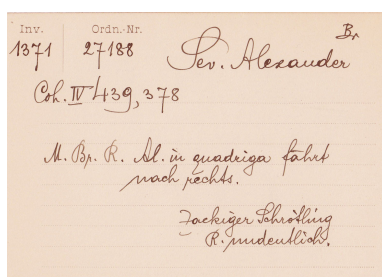 Inv. Ordn.-Nr. Br
1371 27188 Sev. Alexander
Coh. IV 439, 378
M. Br. R. Al. in quadriga fährt
nach rechts.
Zackiger Schrötling
R. undeutlich.